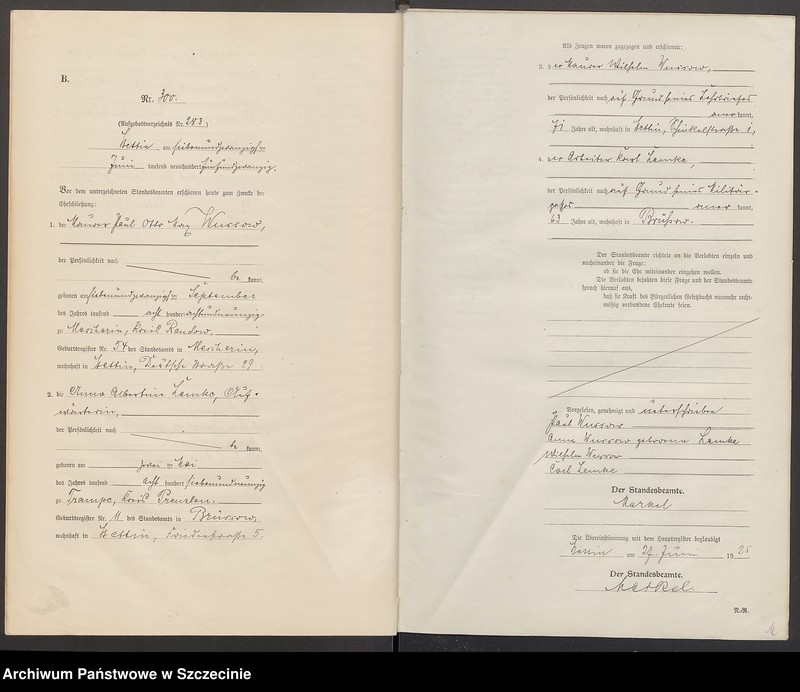 B.
Nr. 300.
(Aufgebotsverzeichnis Nr. 283.)
Stettin am siebenundzwanzigsten
Juni tausend neunhundert fünfundzwanzig.
Vor dem unterzeichneten Standesbeamten erschienen heute zum Zweck der
Eheschließung:
1. der Maurer Paul Otto Max Wussow,
der Persönlichkeit nach
be kannt,
geboren am siebenundzwanzigsten September
des Jahres tausend acht hundert achtundneunzig
zu Mescherin, Kreis Randow,
Geburtsregister Nr. 54 des Standesamts in Mescherin,
wohnhaft in Stettin, Straße 29.
2. die Anna Albertine Lemke, Auf-
wärterin,
der Persönlichkeit nach
be kannt,
geboren am zwei Mai
des Jahres tausend acht hundert siebenundneunzig
zu Trampe, Kreis Prenzlau,
Geburtsregister Nr. 11 des Standesamts in Brüssow,
wohnhaft in Stettin, Lindenstraße 5.
Als Zeugen waren zugezogen und erschienen:
3. der Maurer Wilhelm Wussow,
der Persönlichkeit nach auf Grund seines
aner kannt,
71 Jahre alt, wohnhaft in Stettin, Schinkelstraße 1,
4. der Arbeiter Karl Lemke,
der Persönlichkeit nach auf Grund seines Militär-
passes aner kannt,
63 Jahre alt, wohnhaft in Brüssow.
Der Standesbeamte richtete an die Verlobten einzeln und
nacheinander die Frage:
ob sie die Ehe miteinander eingehen wollen.
Die Verlobten bejahten diese Frage und der Standesbeamte
sprach hierauf aus,
daß sie kraft des Bürgerlichen Gesetzbuchs nunmehr recht-
mäßig verbundene Eheleute seien.
Vorgelesen, genehmigt und unterschrieben
Paul Wussow
Anna Wussow geborene Lemke
Wilhelm Wussow
Carl Lemke
Der Standesbeamte.
Merkel
Die Übereinstimmung mit dem Hauptregister beglaubigt
Stettin am 27. Juni 1925
Der Standesbeamte.
Merkel.
N.-R.
Archiwum Państwowe w Szczecinie